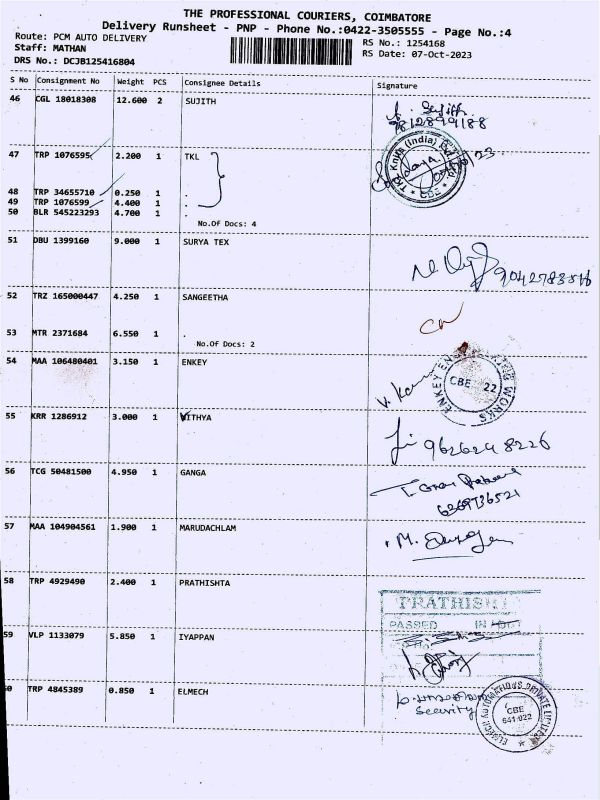 THE PROFESSIONAL COURIERS, COIMBATORE
Delivery Runsheet - PNP - Phone No.:0422-3505555 - Page No.:4
Route: PCM AUTO DELIVERY
RS No.: 1254168
Staff: MATHAN
RS Date: 07-Oct-2023
DRS No.: DCJB125416804
S No Consignment No Weight PCS Consignee Details Signature
46 CGL 18018308 12.600 2 SUJITH
9812899188
47 TRP 1076595 2.200 1 TKL
TKL Knits (India)
CBE
48 TRP 34655710 0.250 1 .
49 TRP 1076599 4.400 1 .
50 BLR 545223293 4.700 1 .
No.Of Docs: 4
51 DBU 1399160 9.000 1 SURYA TEX
52 TRZ 165000447 4.250 1 SANGEETHA
53 MTR 2371684 6.550 1 .
No.Of Docs: 2
54 MAA 106480401 3.150 1 ENKEY
ENKEY WORKS
CBE 22
55 KRR 1286912 3.000 1 VITHYA
9626248226
56 TCG 50481500 4.950 1 GANGA
6369736521
57 MAA 104904561 1.900 1 MARUDACHLAM
58 TRP 4929490 2.400 1 PRATHISHTA
PRATHISH
PASSED
59 VLP 1133079 5.850 1 IYAPPAN
60 TRP 4845389 0.850 1 ELMECH
Security
ELMECH AUTOMATIONS PRIVATE LIMITED
CBE
641 022